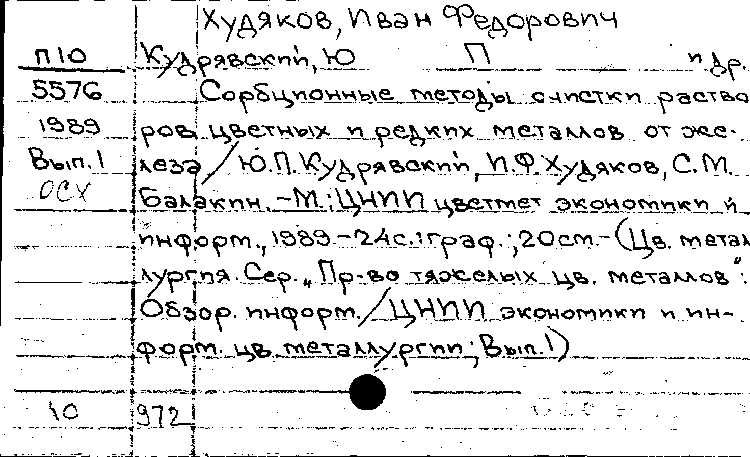 Худяков, Иван Федорович
П10 Кудрявский, Ю П и др.
5576 Сорбционные методы очистки раство
1989 ров цветных и редких металлов от же-
Вып. 1 леза / Ю.П. Кудрявский, И.Ф. Худяков, С.М.
ОСХ Балакин. - М.: ЦНИИ цветмет экономики и
информ., 1989. - 24с.: граф.; 20см. - (Цв. метал
лургия. Сер. „Пр-во тяжелых цв. металлов":
Обзор. информ. / ЦНИИ экономики и ин-
форм. цв. металлургии; Вып. 1)
10 972